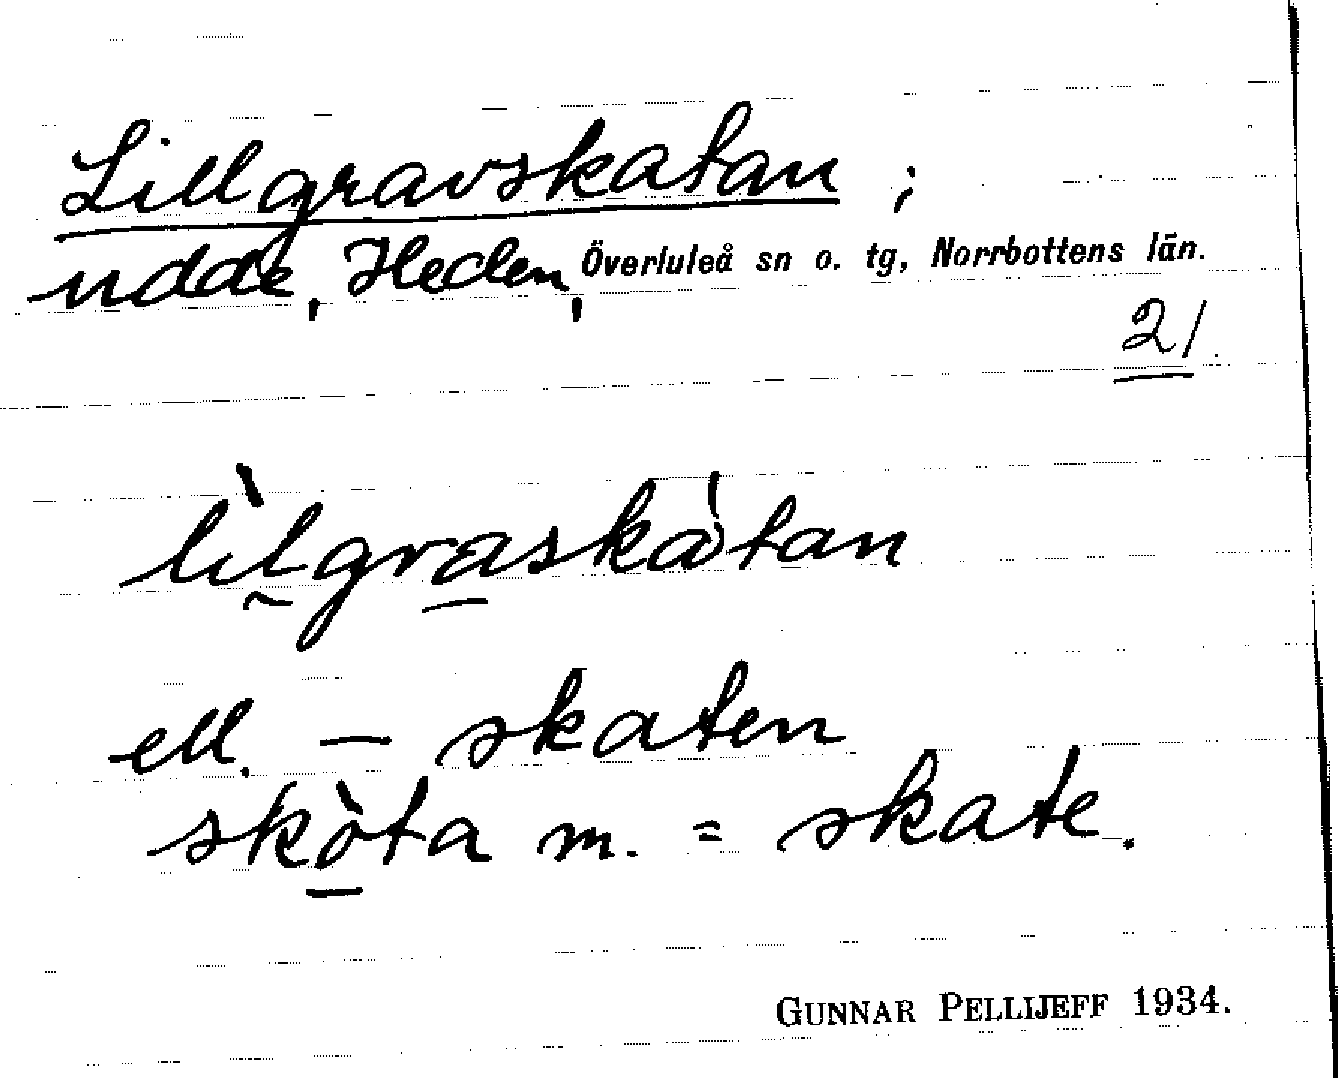 Lillgravskatan ;
udde, Heden, Överluleå sn o. tg, Norrbottens län.
21
lìlgraskàtan
ell. – skaten
skòta m. = skate.
GUNNAR PELLIJEFF 1934.